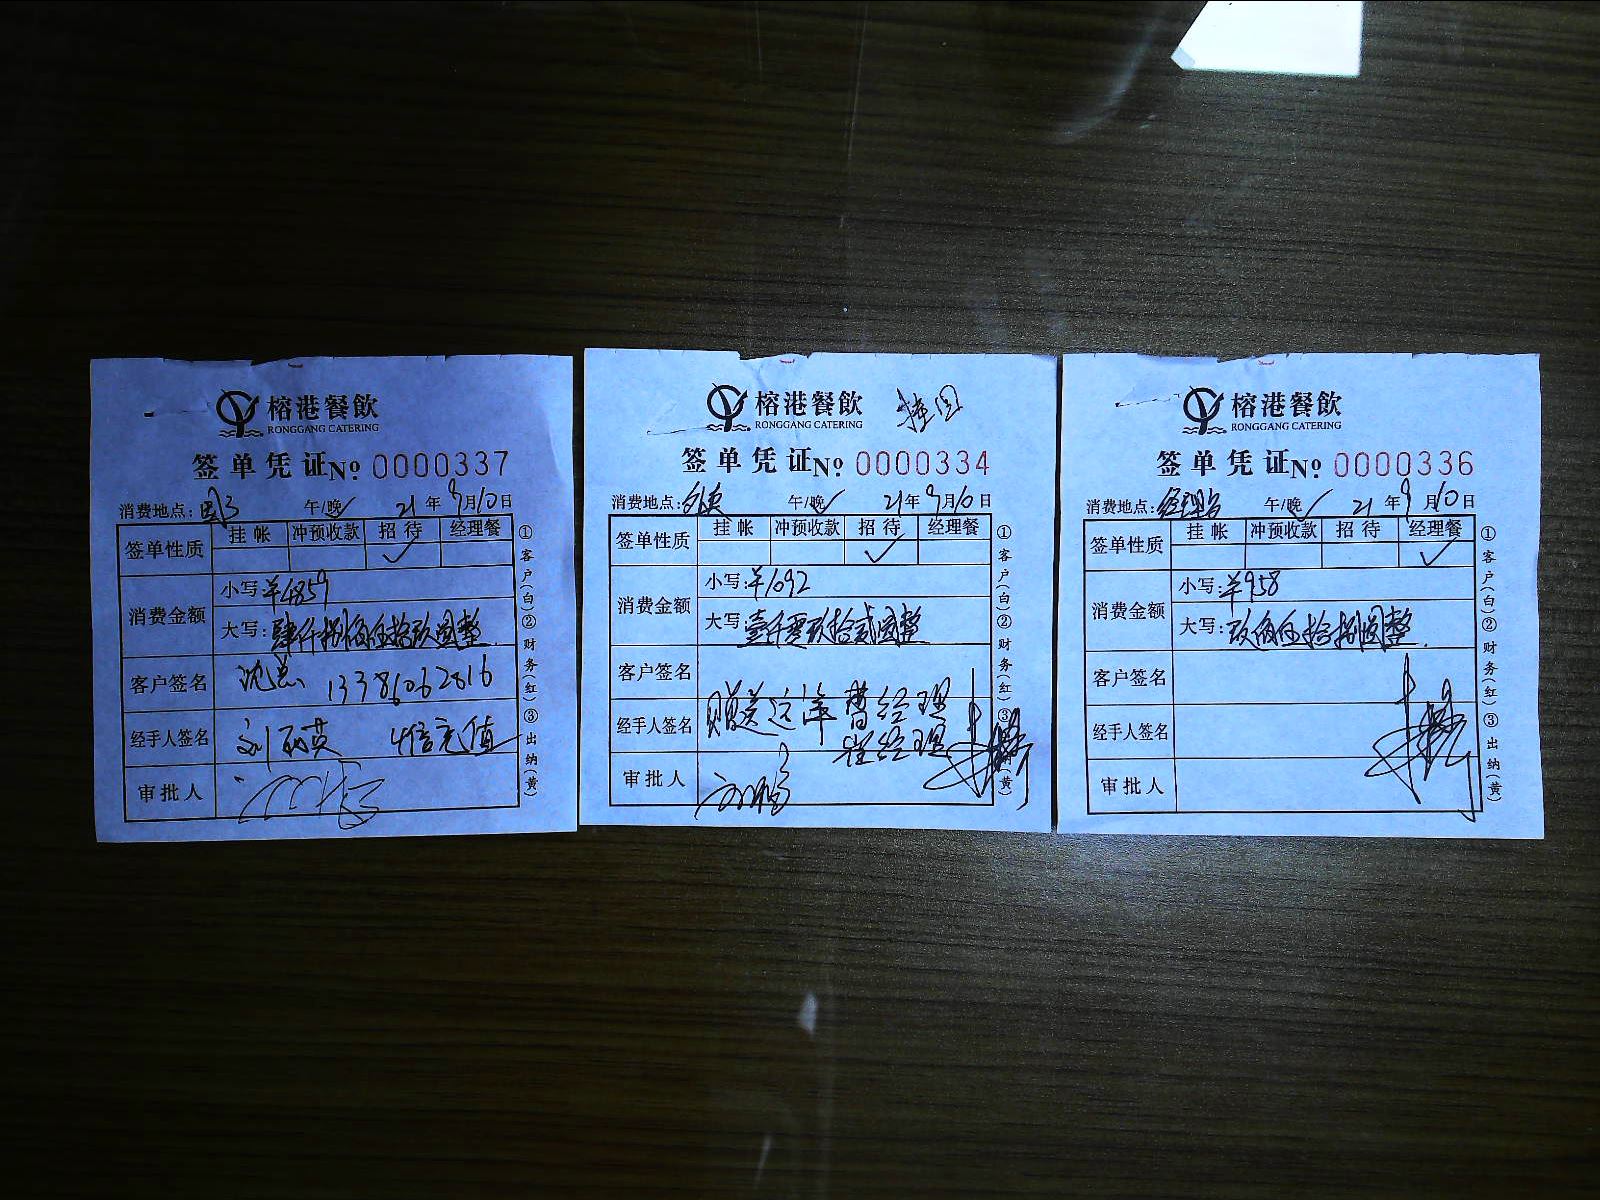 榕港餐飲
RONGGANG CATERING
签单凭证№ 0000337
消费地点: 午/晚 21年9月10日
签单性质 挂帐 冲预收款 招待 经理餐
✓
消费金额
小写: ¥4859
大写: 肆仟捌佰伍拾玖圆整
客户签名 沈总 13386062816
经手人签名 刘丽英 4倍充值
审批人
①客户(白)②财务(红)③出纳(黄)
榕港餐飲
RONGGANG CATERING
签单凭证№ 0000334
消费地点: 外卖 午/晚 21年9月10日
签单性质 挂帐 冲预收款 招待 经理餐
✓
消费金额
小写: ¥1092
大写: 壹仟零玖拾贰圆整
客户签名
经手人签名 赠送远洋曹经理
崔经理
审批人
①客户(白)②财务(红)③出纳(黄)
榕港餐飲
RONGGANG CATERING
签单凭证№ 0000336
消费地点: 午/晚 21年9月10日
签单性质 挂帐 冲预收款 招待 经理餐
✓
消费金额
小写: ¥958
大写: 玖佰伍拾捌圆整
客户签名
经手人签名
审批人
①客户(白)②财务(红)③出纳(黄)